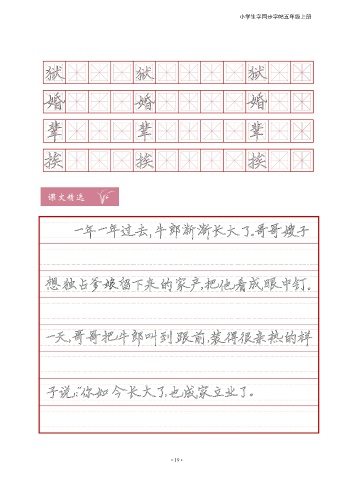 小学生字同步字帖五年级上册
狱 狱 狱
婚 婚 婚
辈 辈 辈
挨 挨 挨
课文精选
一年一年过去,牛郎渐渐长大了。哥哥嫂子
想独占爹娘留下来的家产,把他看成眼中钉。
一天,哥哥把牛郎叫到跟前,装得很亲热的样
子说:“你如今长大了,也成家立业了。
·19·